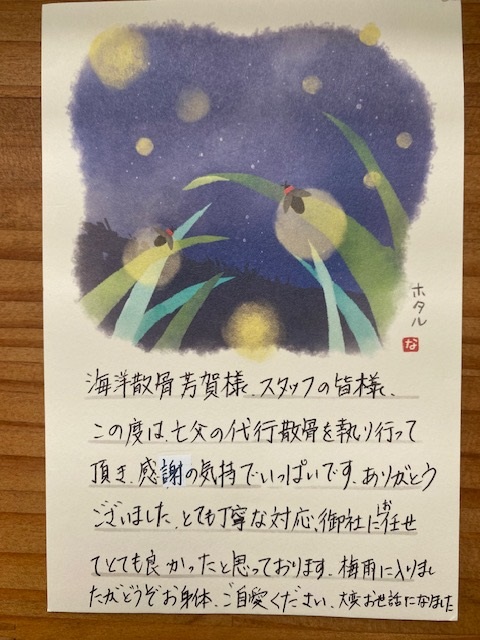 ホタル
な
海洋散骨芳賀様、スタッフの皆様、
この度は、亡父の代行散骨を執り行って
頂き、感謝の気持でいっぱいです。ありがとう
ございました。とても丁寧な対応、御社にお任せ
てとても良かったと思っております。梅雨に入りまし
たがどうぞお身体、ご自愛ください。大変お世話になりました